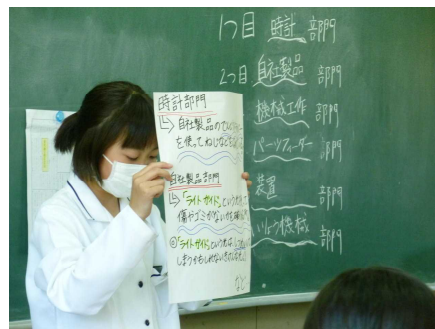 1つ目 時計 部門
2つ目 自社製品 部門
機械工作 部門
パーツフィーダー 部門
装置 部門
いりょう機械 部門
時計部門
↳自社製品の
を使ってねじなどを
自社製品部門
↳「ライトガイド」という
傷やゴミがないかを
④「ライトガイド」というのは、
しまうかもしれない
など